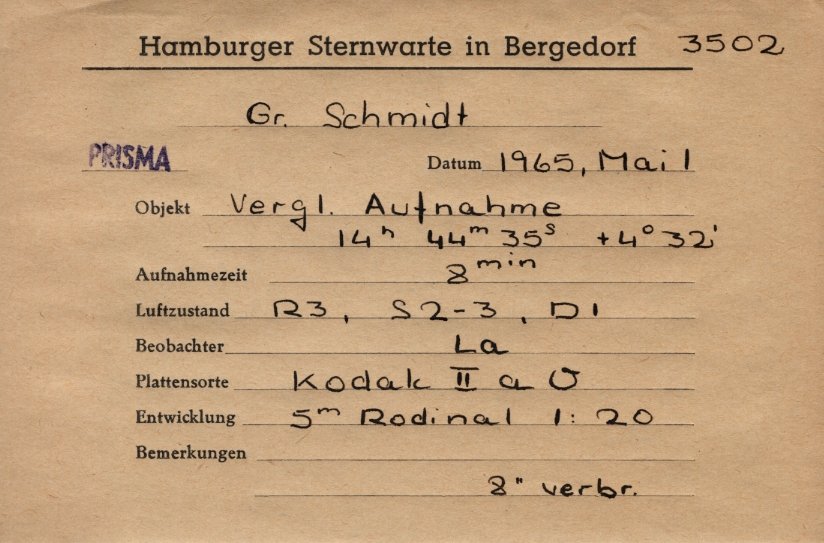 Hamburger Sternwarte in Bergedorf 3502
Gr. Schmidt
PRISMA Datum 1965, Mai 1
Objekt Vergl. Aufnahme
14h 44m 35s +4° 32'
Aufnahmezeit 8min
Luftzustand R3, S2-3, D1
Beobachter La
Plattensorte Kodak II a O
Entwicklung 5m Rodinal 1:20
Bemerkungen
8" verbr.